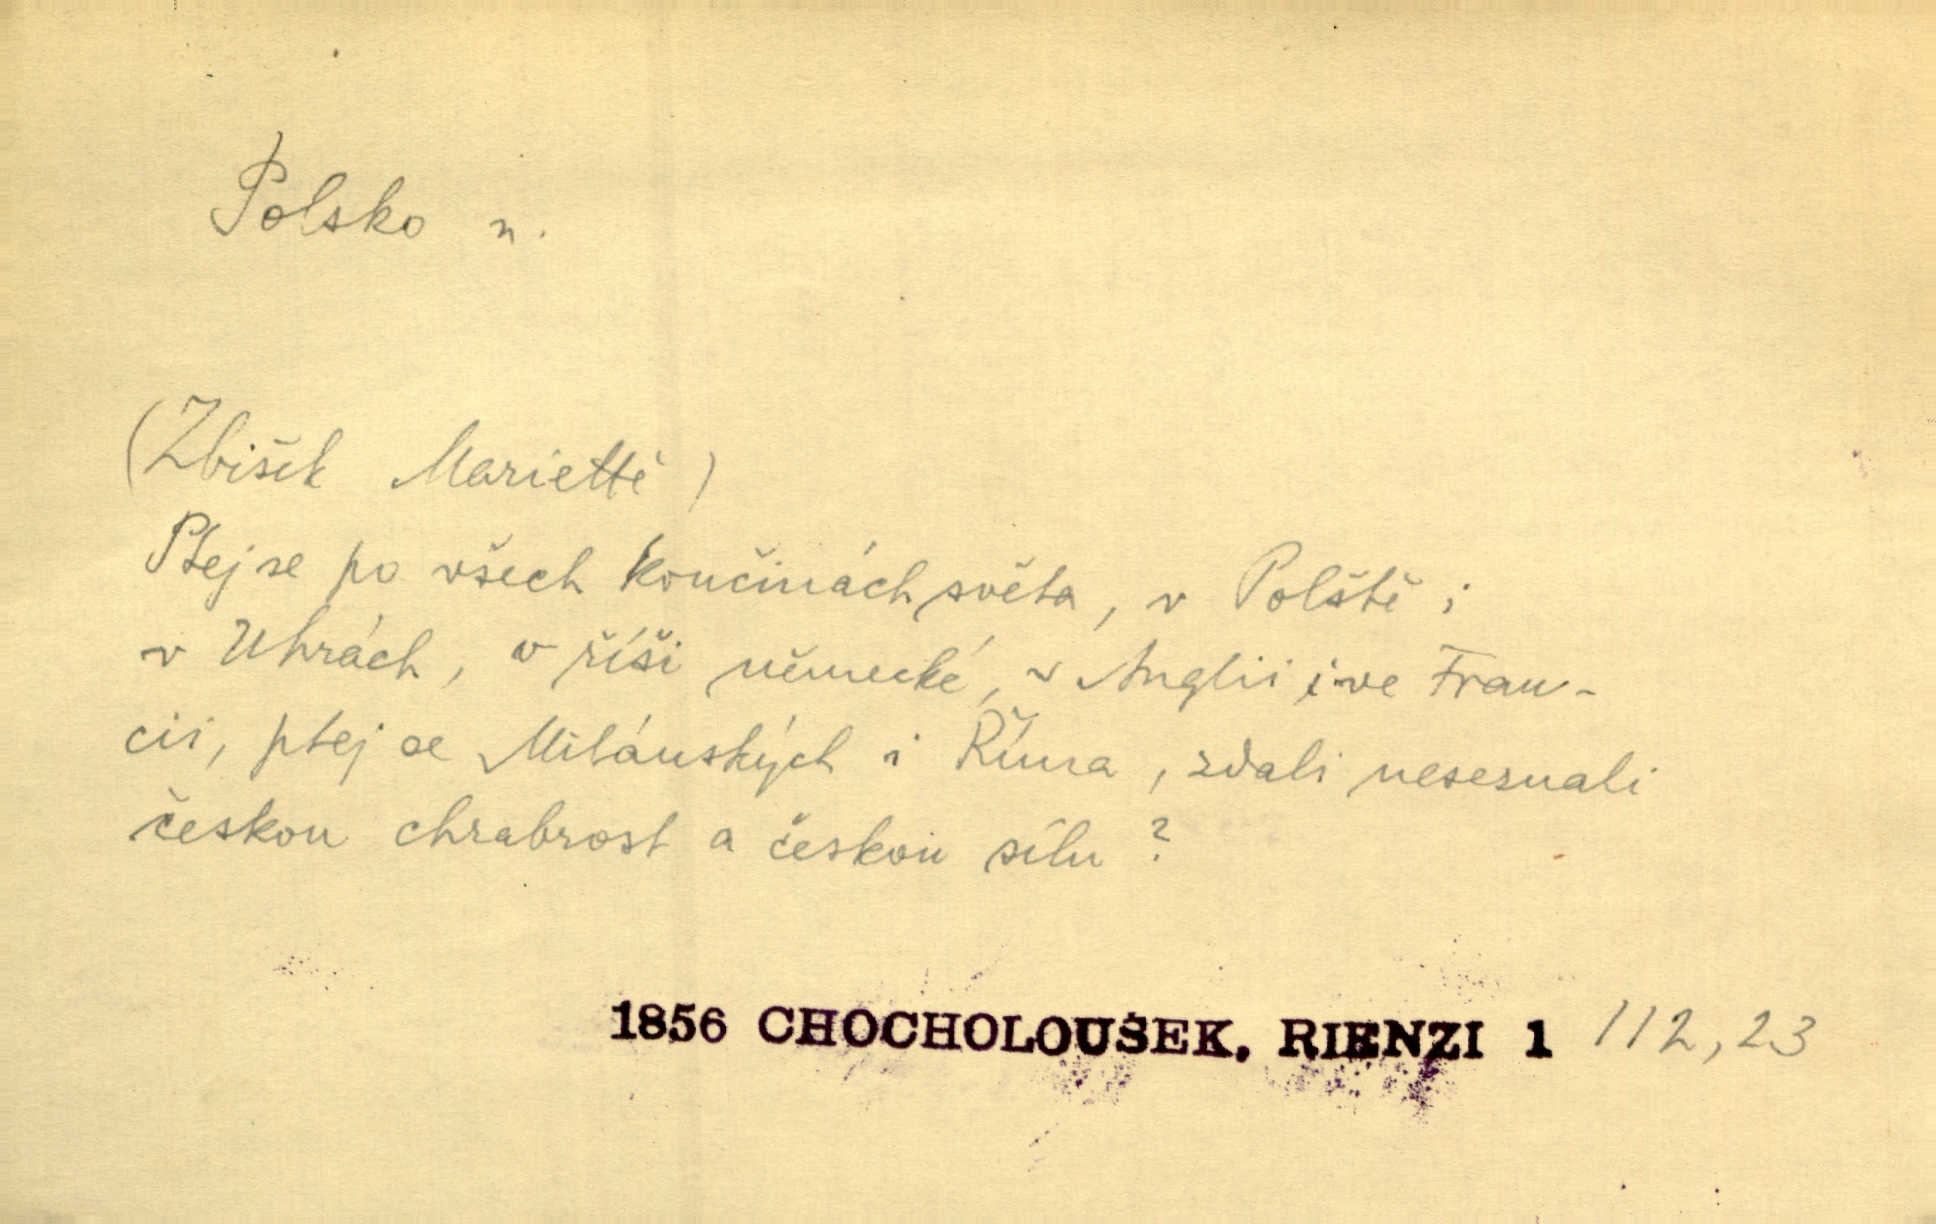 Polsko n.
(Zbišek Mariettě)
Ptej se po všech končinách světa, v Polště i
v Uhrách, v říši německé, v Anglii i ve Fran-
cii, ptej se Milánských i Říma, zdali neseznali
českou chrabrost a českou sílu?
1856 CHOCHOLOUŠEK, RIENZI 1 112,23